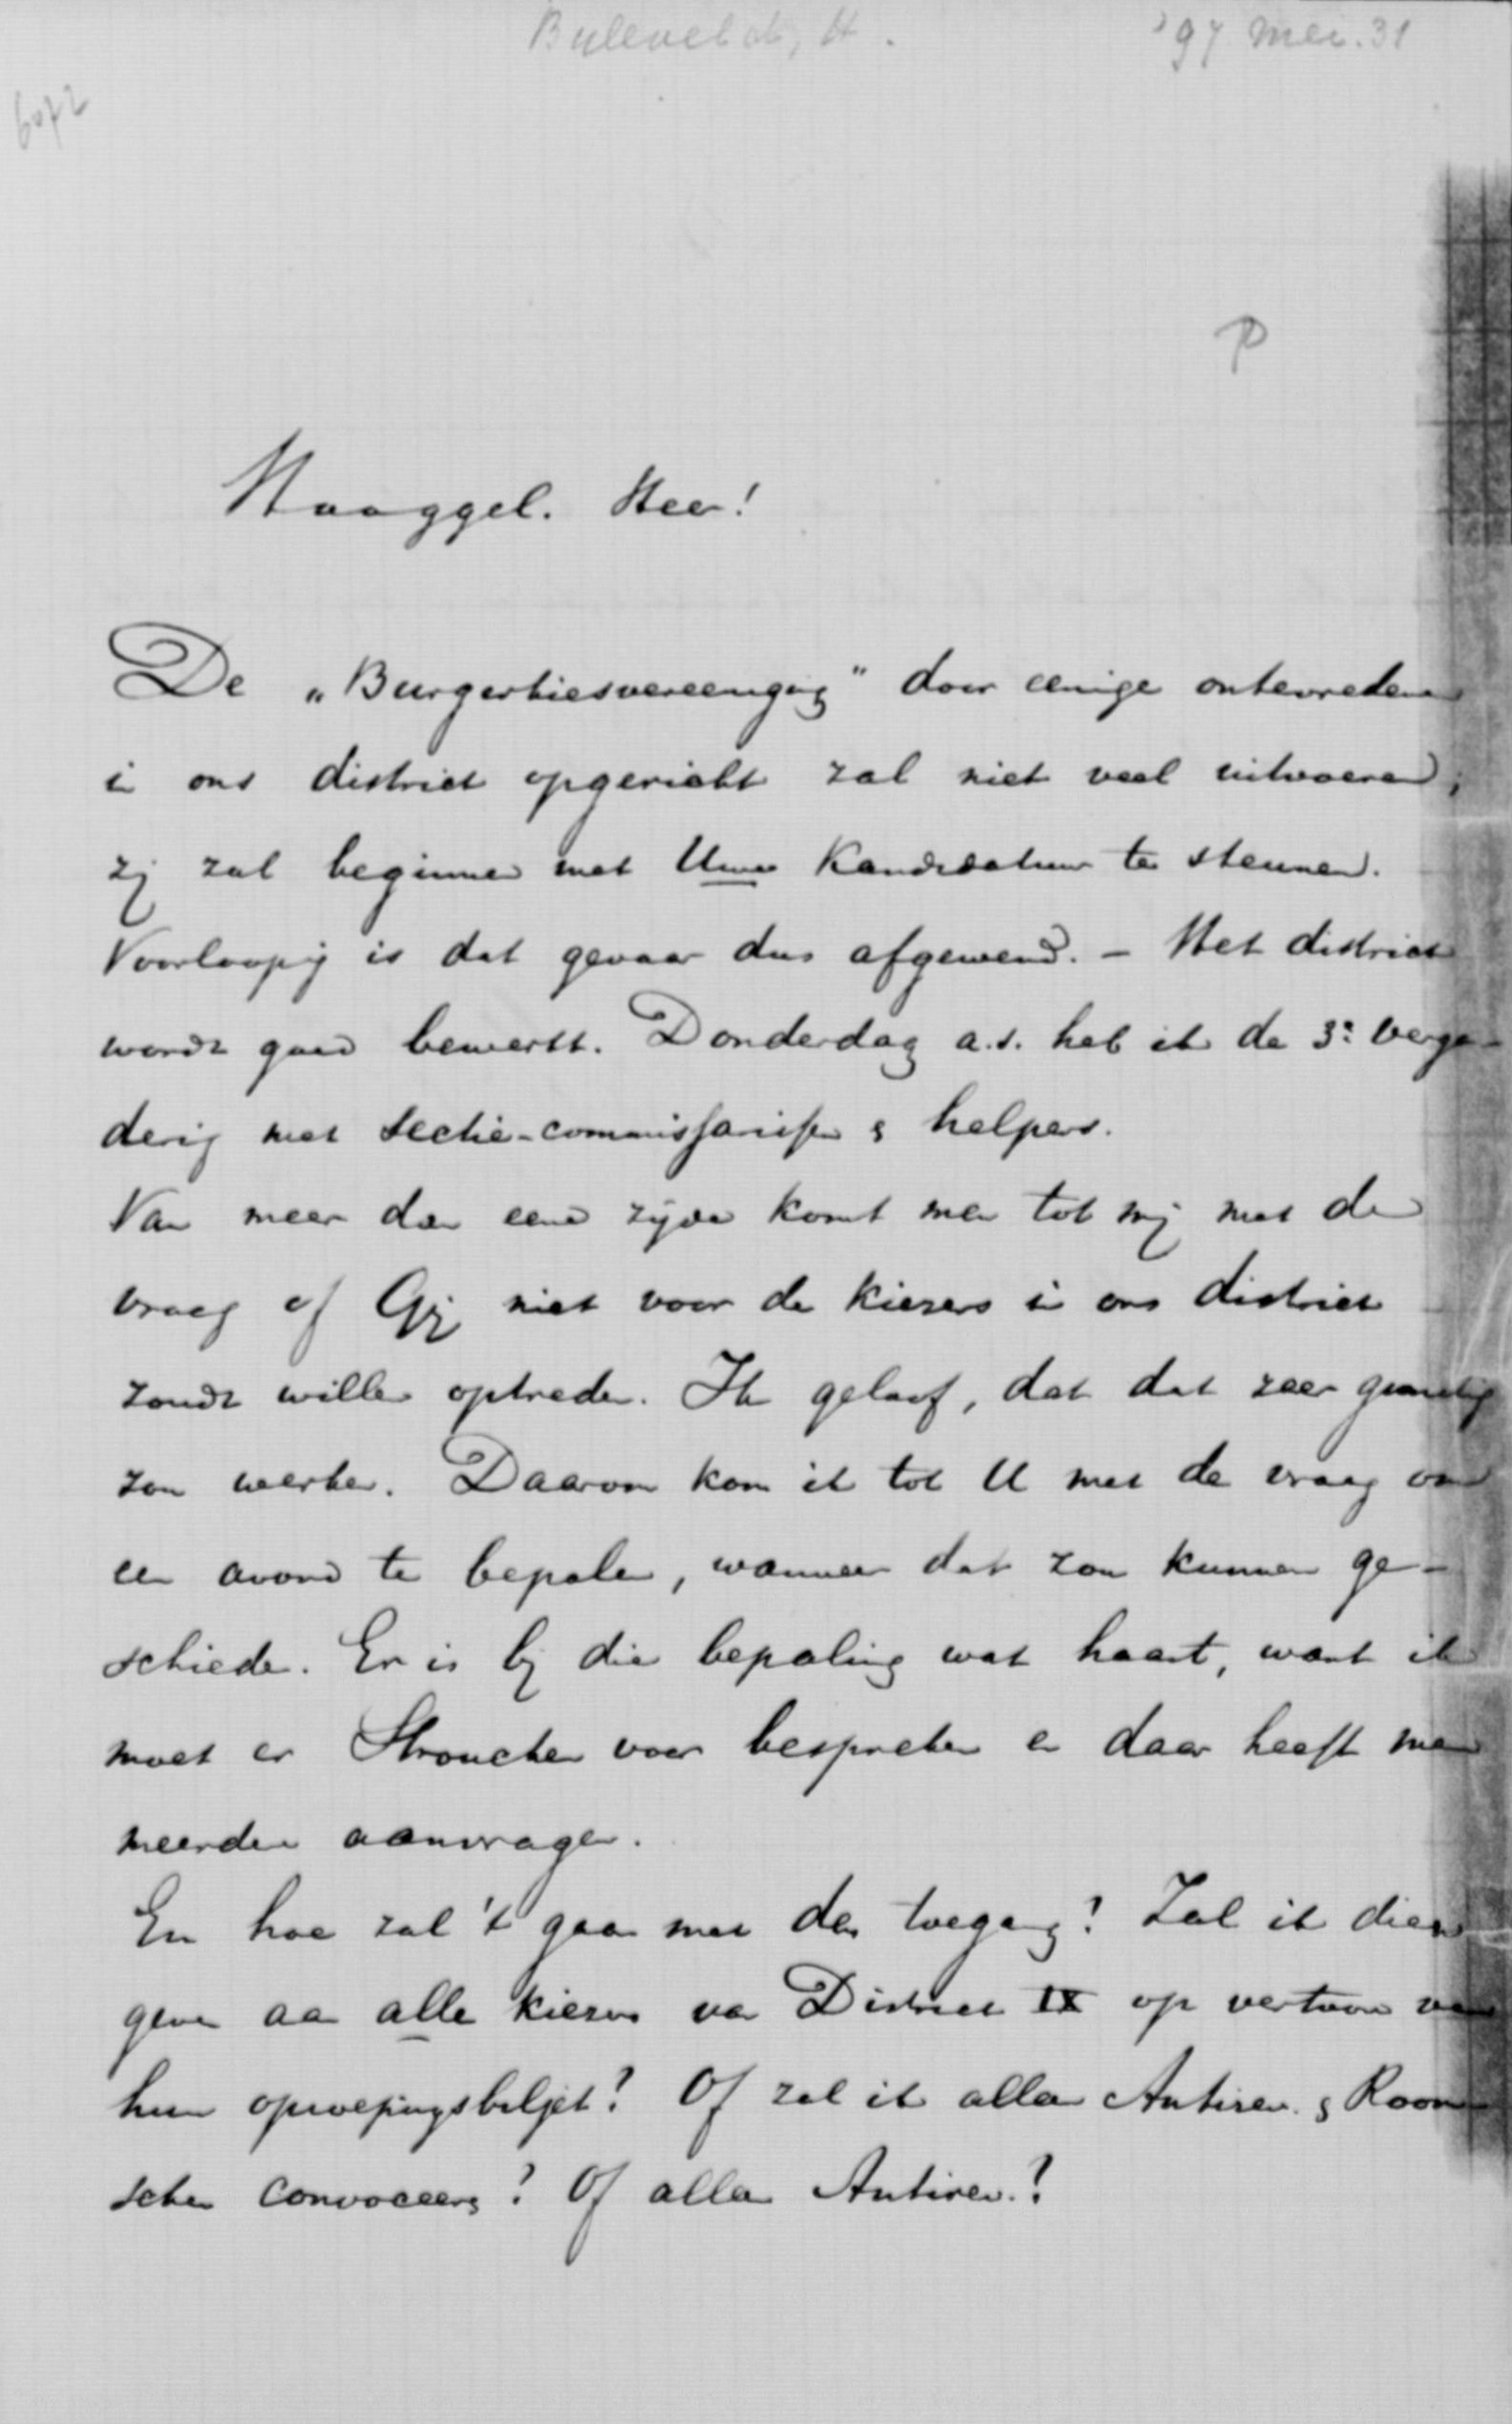 Bijleveld, H. '97 mei. 31
6072
P
Hooggel. Heer!
De „Burgerkiesvereenging" door eenige ontevredenen
in ons district opgericht zal niet veel uitvoeren,
zij zal beginnen met Uwe Kandidatuur te steunen.
Voorloopig is dat gevaar dus afgewend. - Het district
wordt goed bewerkt. Donderdag a.s. heb ik de 3e verga-
dering met sectie-commissarissen & helpers.
Van meer dan eene zijde komt men tot mij met de
vraag of Gij niet voor de kiezers in ons district
zoudt willen optreden. Ik geloof, dat dat zeer gunstig
zou werken. Daarom kom ik tot U met de vraag om
een avond te bepalen, wanneer dat zou kunnen ge-
schieden. Er is bij die bepaling wat haast, want ik
moet er Stroucken voor bespreken en daar heeft men
meerdere aanvragen.
En hoe zal 't gaan met den toegang? Zal ik dien
geven aan alle kiezers van District IX op vertoon van
hun oproepingsbiljet? Of zal ik allen Antirev. & Room-
schen convoceeren? Of allen Antirev.?